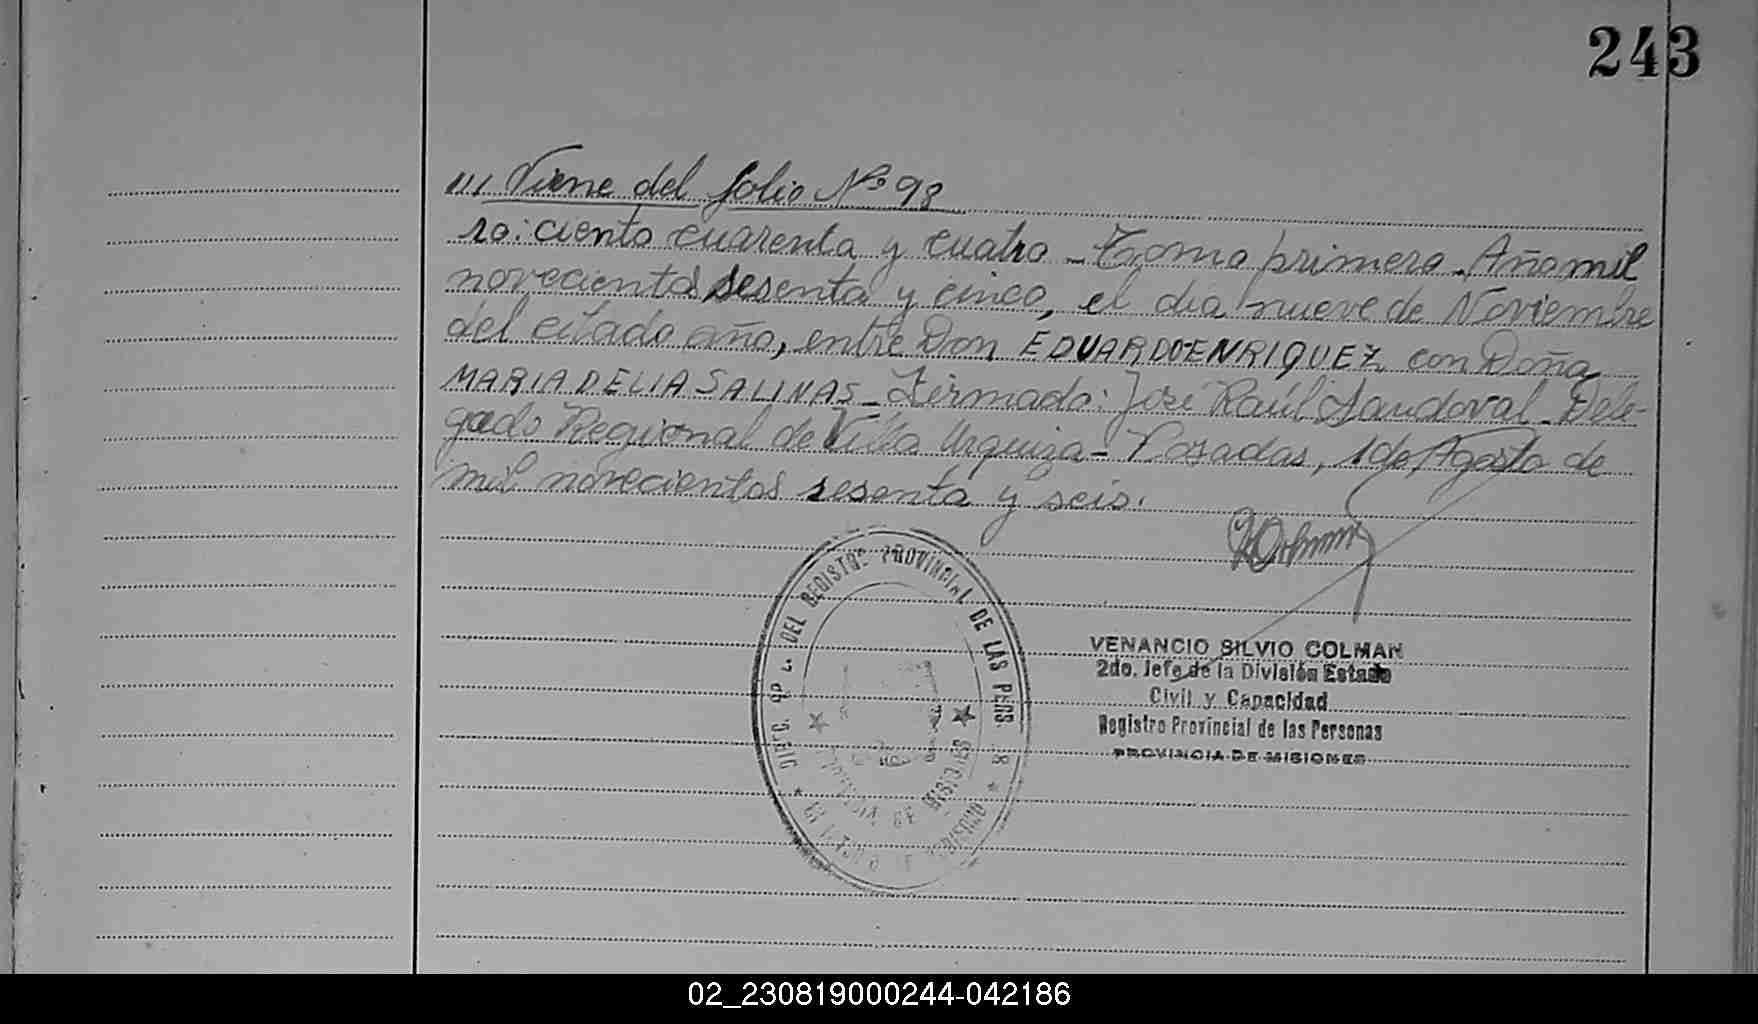 243
/// Viene del folio Nº 98
ro: ciento cuarenta y cuatro - Tomo primero - Año mil
novecientos sesenta y cinco, el dia nueve de Noviembre
del citado año, entre Don EDUARDO ENRIQUEZ con Doña
MARIA DELIA SALINAS - Firmado: José Raúl Sandoval - Dele-
gado Regional de Villa Urquiza - Posadas, 1 de Agosto de
mil novecientos sesenta y seis.
DEL REGISTRO PROVINCIAL DE LAS PERS
DE MISIONES
VENANCIO SILVIO COLMAN
2do. Jefe de la División Estado
Civil y Capacidad
Registro Provincial de las Personas
PROVINCIA DE MISIONES
02_230819000244-042186